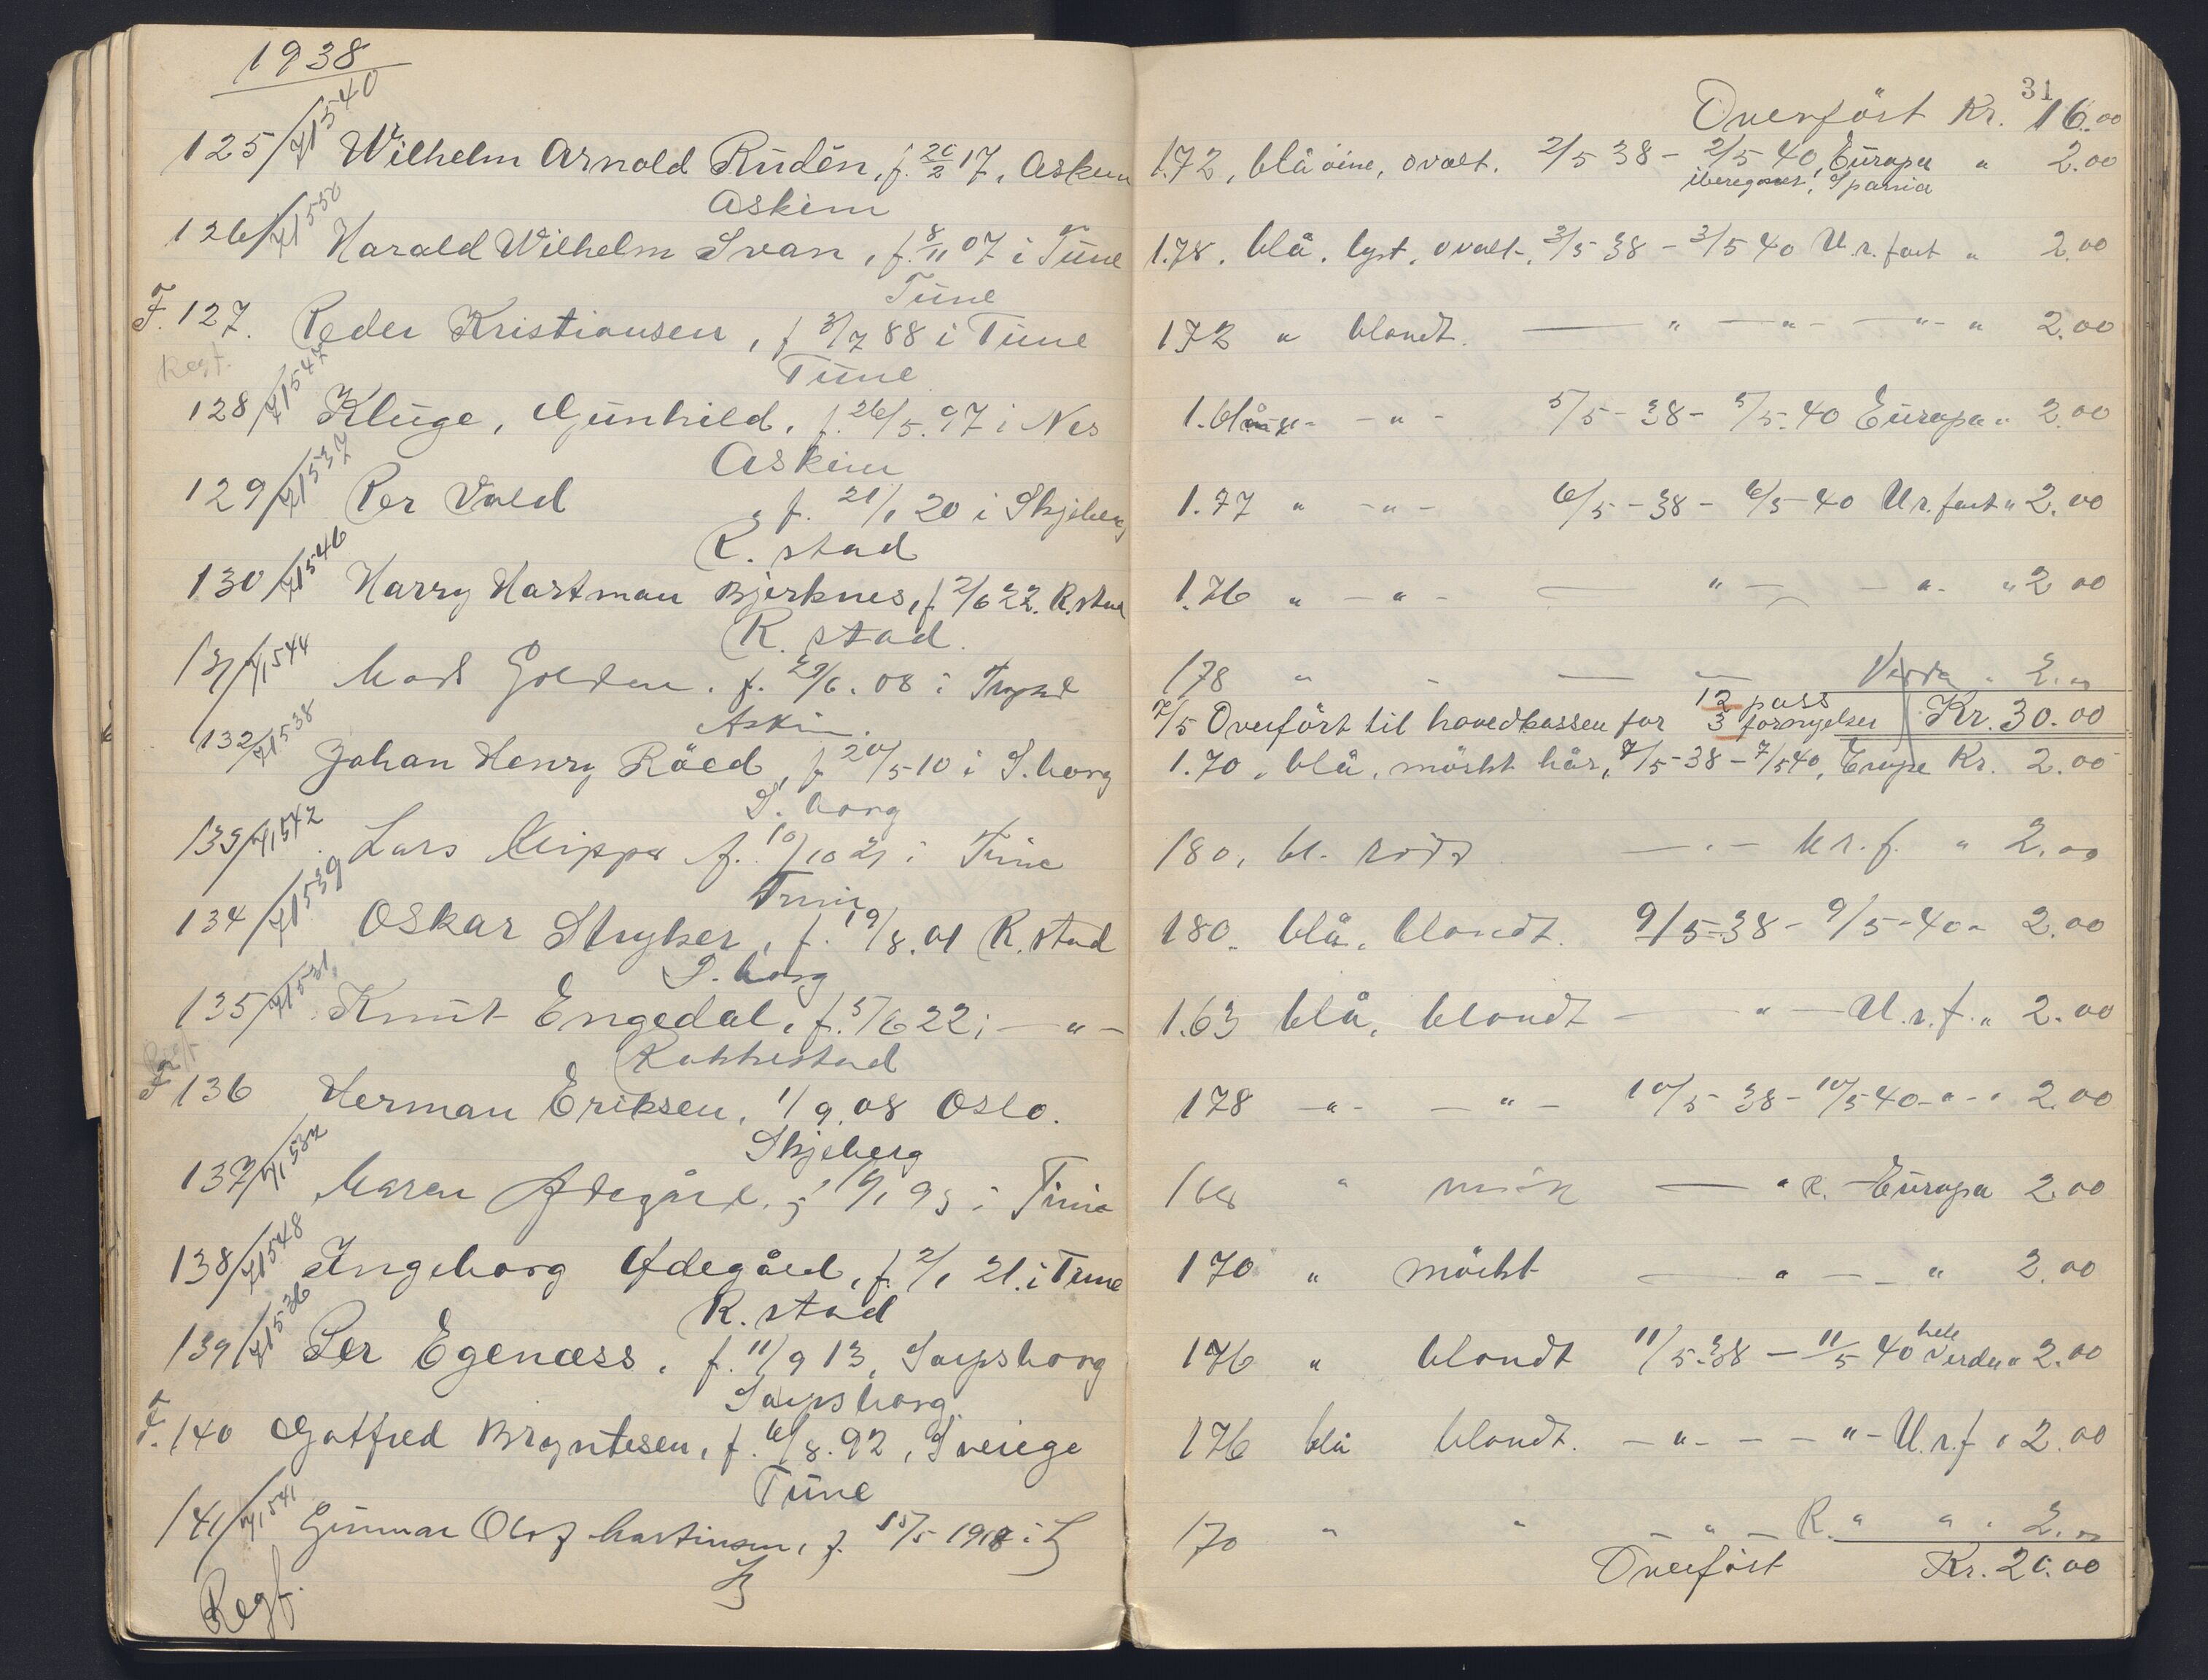 1938
31
Overfört Kr. 16.00
125/71540 Wilhelm Arnold Rudén, f. 20/2 17, Askim 1.72, blå öine, ovalt. 2/5 38 - 2/5 40, Europa " 2.00
Askim Spania
126/71550 Harald Wilhelm Ivan, f. 8/11 07 i Tune 1.78. blå. lyst. ovalt. 3/5 38 - 3/5 40 U.r.fart " 2.00
Tune
F. 127. Peder Kristiansen, f 3/7 88 i Tune 172 " blondt. — " — " — " — " 2.00
Regf. Tune
128/71547 Kluge, Gunhild, f. 26/5. 97 i Nes - " - 5/5 - 38 - 5/5. 40 Europa " 2.00
Askim
129/71537 Per Vold , f. 21/1 20 i Skjeberg 1.77 " - " - 6/5 - 38 - 6/5 - 40 U.r. fart " 2.00
R. stad
130/71546 Harry Hartman Bjerknes, f 2/6 22. R.stad 1.76 " - " - — " — - " - " 2 00
R. stad.
131/71544 f. 29/6. 08 i Trysil 178 " - — — 2.00
Askim. 12 pass
7/5 Overfört til hovedkassen for 3 fornyelser Kr. 30.00
132/71538 Johan Henry Röed, f 20/5-10 i S.borg 1.70, blå, mörkt hår, 7/5-38 - 7/5 40, Europa Kr. 2.00
S. borg
133/71542 Lars f. 10/10 21 i Tune 180, bl. — " — U.r.f. " 2.00
Tune
134/71539 Oskar Stryker, f. 19/8.01 R.stad 180. blå. blondt. 9/5-38 - 9/5-40 " 2.00
S. borg
135/71531 Knut Engedal, f. 5/6 22 i — " — 1.63 blå, blondt — " — U.r.f. " 2.00
Rakkestad
F 136 Herman Eriksen, 1/9.08 Oslo. 178 - " - - " - 10/5 38 - 10/5 40 - " - " 2.00
Skjeberg
137/71532 Maren Ødegård, f i Tune 168 " mörk — " R. - Europa 2.00
138/71548 Ingeborg Ødegård, f. 2/1 21. i Tune 170 " mörkt — " — " 2.00
R. stad
139/71536 Per Egenæss, f. 11/9 13, Sarpsborg 176 " blondt 11/5-38 - 11/5 40 hele Verden " 2.00
Sarpsborg
F. 140 Gotfred Bryntesen, f. 6/8. 92, Sverige 176 blå blondt. - " - - - " - U.r.f " 2.00
Tune
141/71541 Gunnar Olof Martinsen, f. 15/5 1918 i 170 " " - " - R. " " " 2.00
Regf. Overfört Kr. 20.00